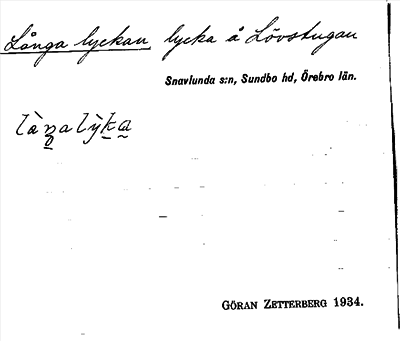 Långa lyckan, lycka å Lövstugan
Snavlunda s:n, Sundbo hd, Örebro län.
làŋalỳka
GÖRAN ZETTERBERG 1934.